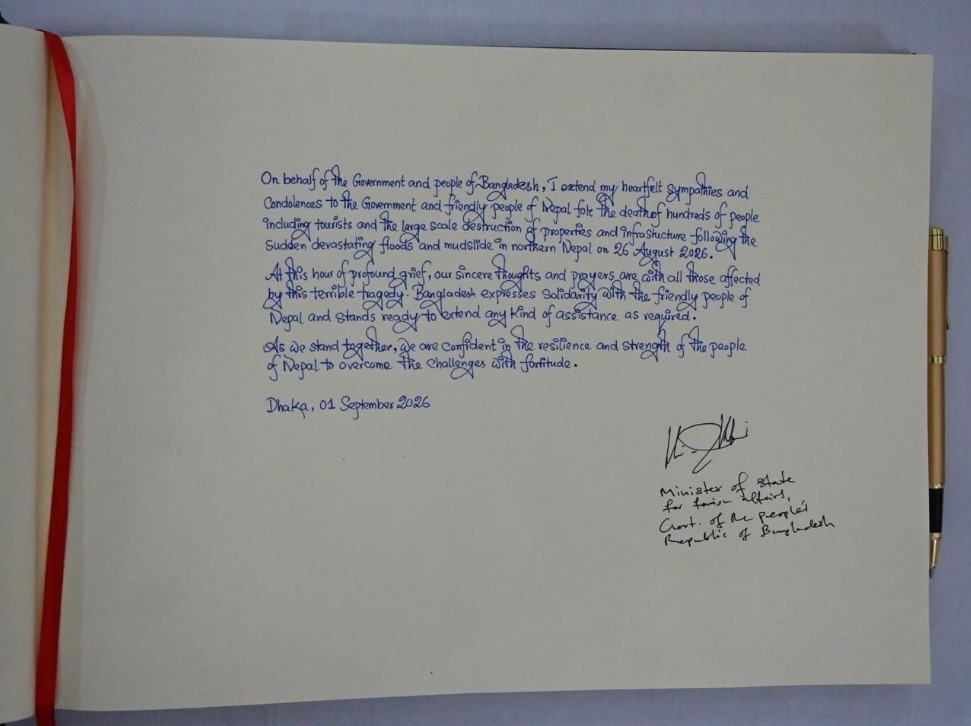 On behalf of the Government and people of Bangladesh, I extend my heartfelt Sympathies and
Condolences to the Government and friendly people of Nepal for the death of hundreds of people
including tourists and the large scale destruction of properties and infrastucture following the
Sudden devastating floods and mudslide in northern Nepal on 26 August 2026.
At this hour of profound grief, our sincere thoughts and prayers are with all those affected
by this terrible tragedy. Bangladesh expresses Solidarity with the friendly people of
Nepal and stands ready to extend any kind of assistance as required.
As we stand together, we are confident in the resilience and strength of the people
of Nepal to overcome the challenges with fortitude.
Dhaka, 01 September 2026
Minister of state
for foreign affairs,
Govt. of the people's
Republic of Bangladesh